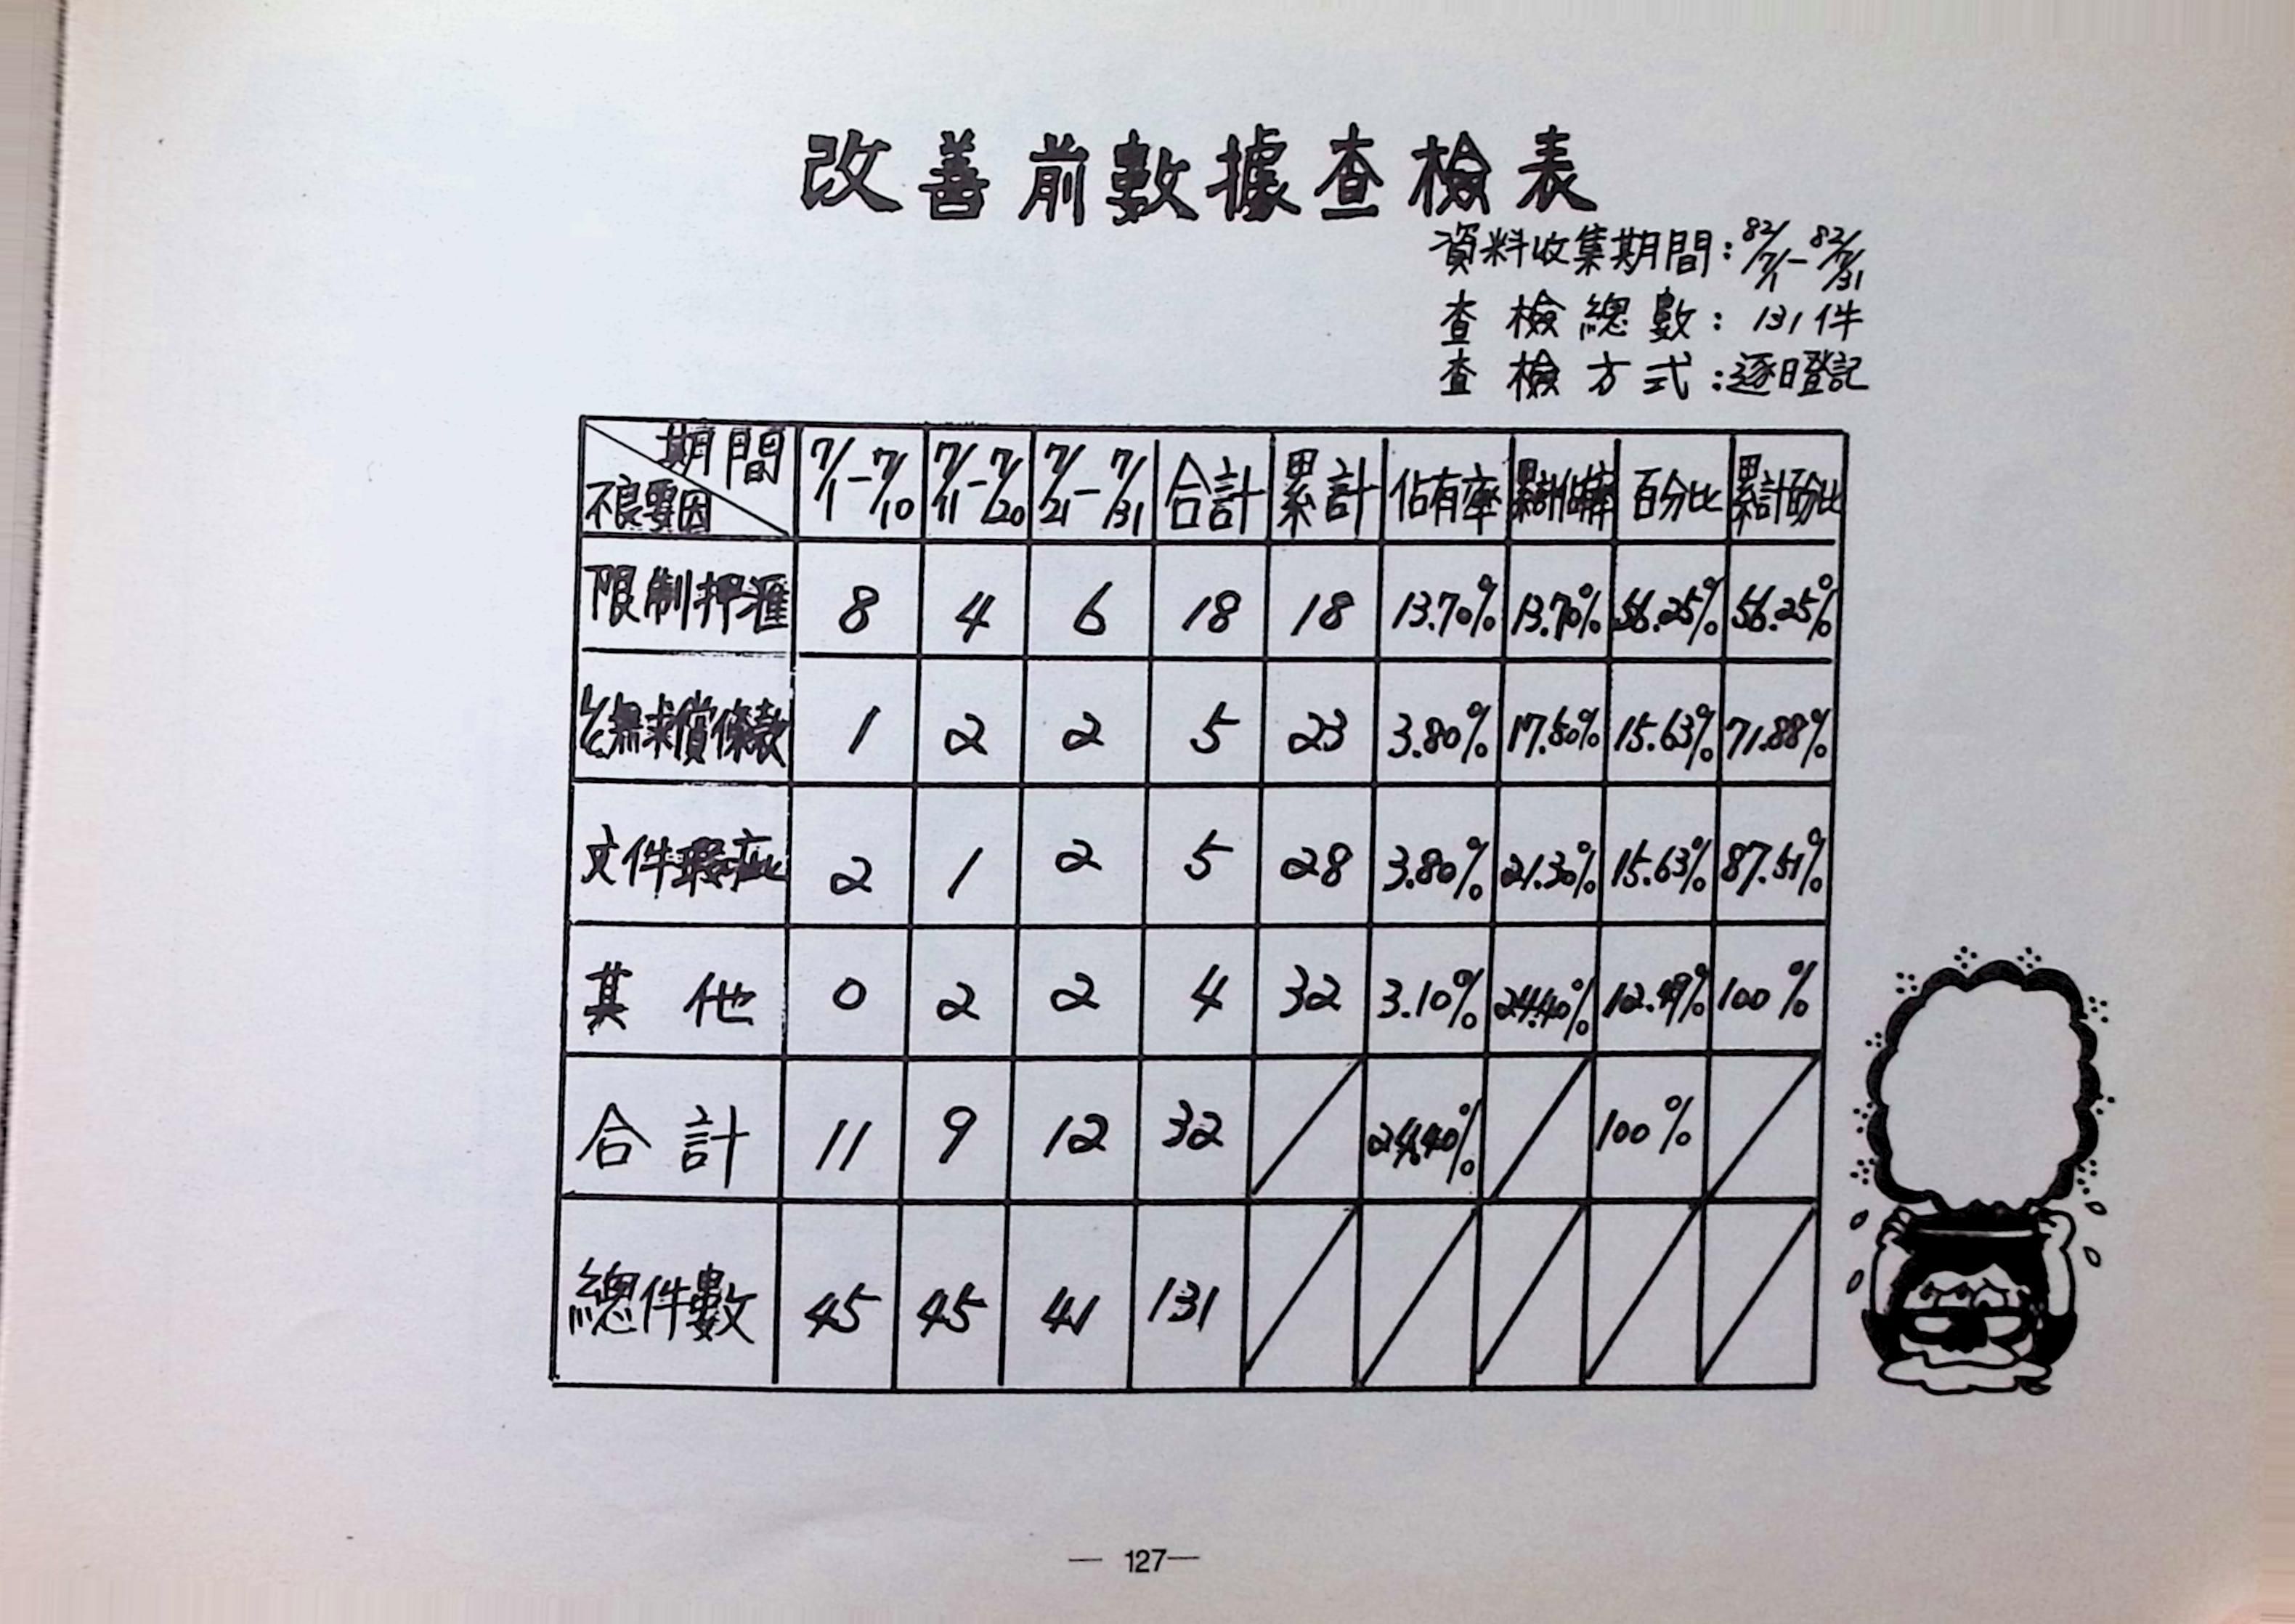 改善前數據查檢表
資料收集期間：82/7/1－82/7/31
查檢總數：131件
查檢方式：逐日登記
期間 不良要因 7/1－7/10 7/11－7/20 7/21－7/31 合計 累計 佔有率 累計佔有率 百分比 累計百分比
限制押滙 8 4 6 18 18 13.70% 13.70% 56.25% 56.25%
L/C無求償條款 1 2 2 5 23 3.80% 17.50% 15.63% 71.88%
文件瑕疵 2 1 2 5 28 3.80% 21.30% 15.63% 87.51%
其他 0 2 2 4 32 3.10% 24.40% 12.49% 100%
合計 11 9 12 32 24.40% 100%
總件數 45 45 41 131
— 127 —